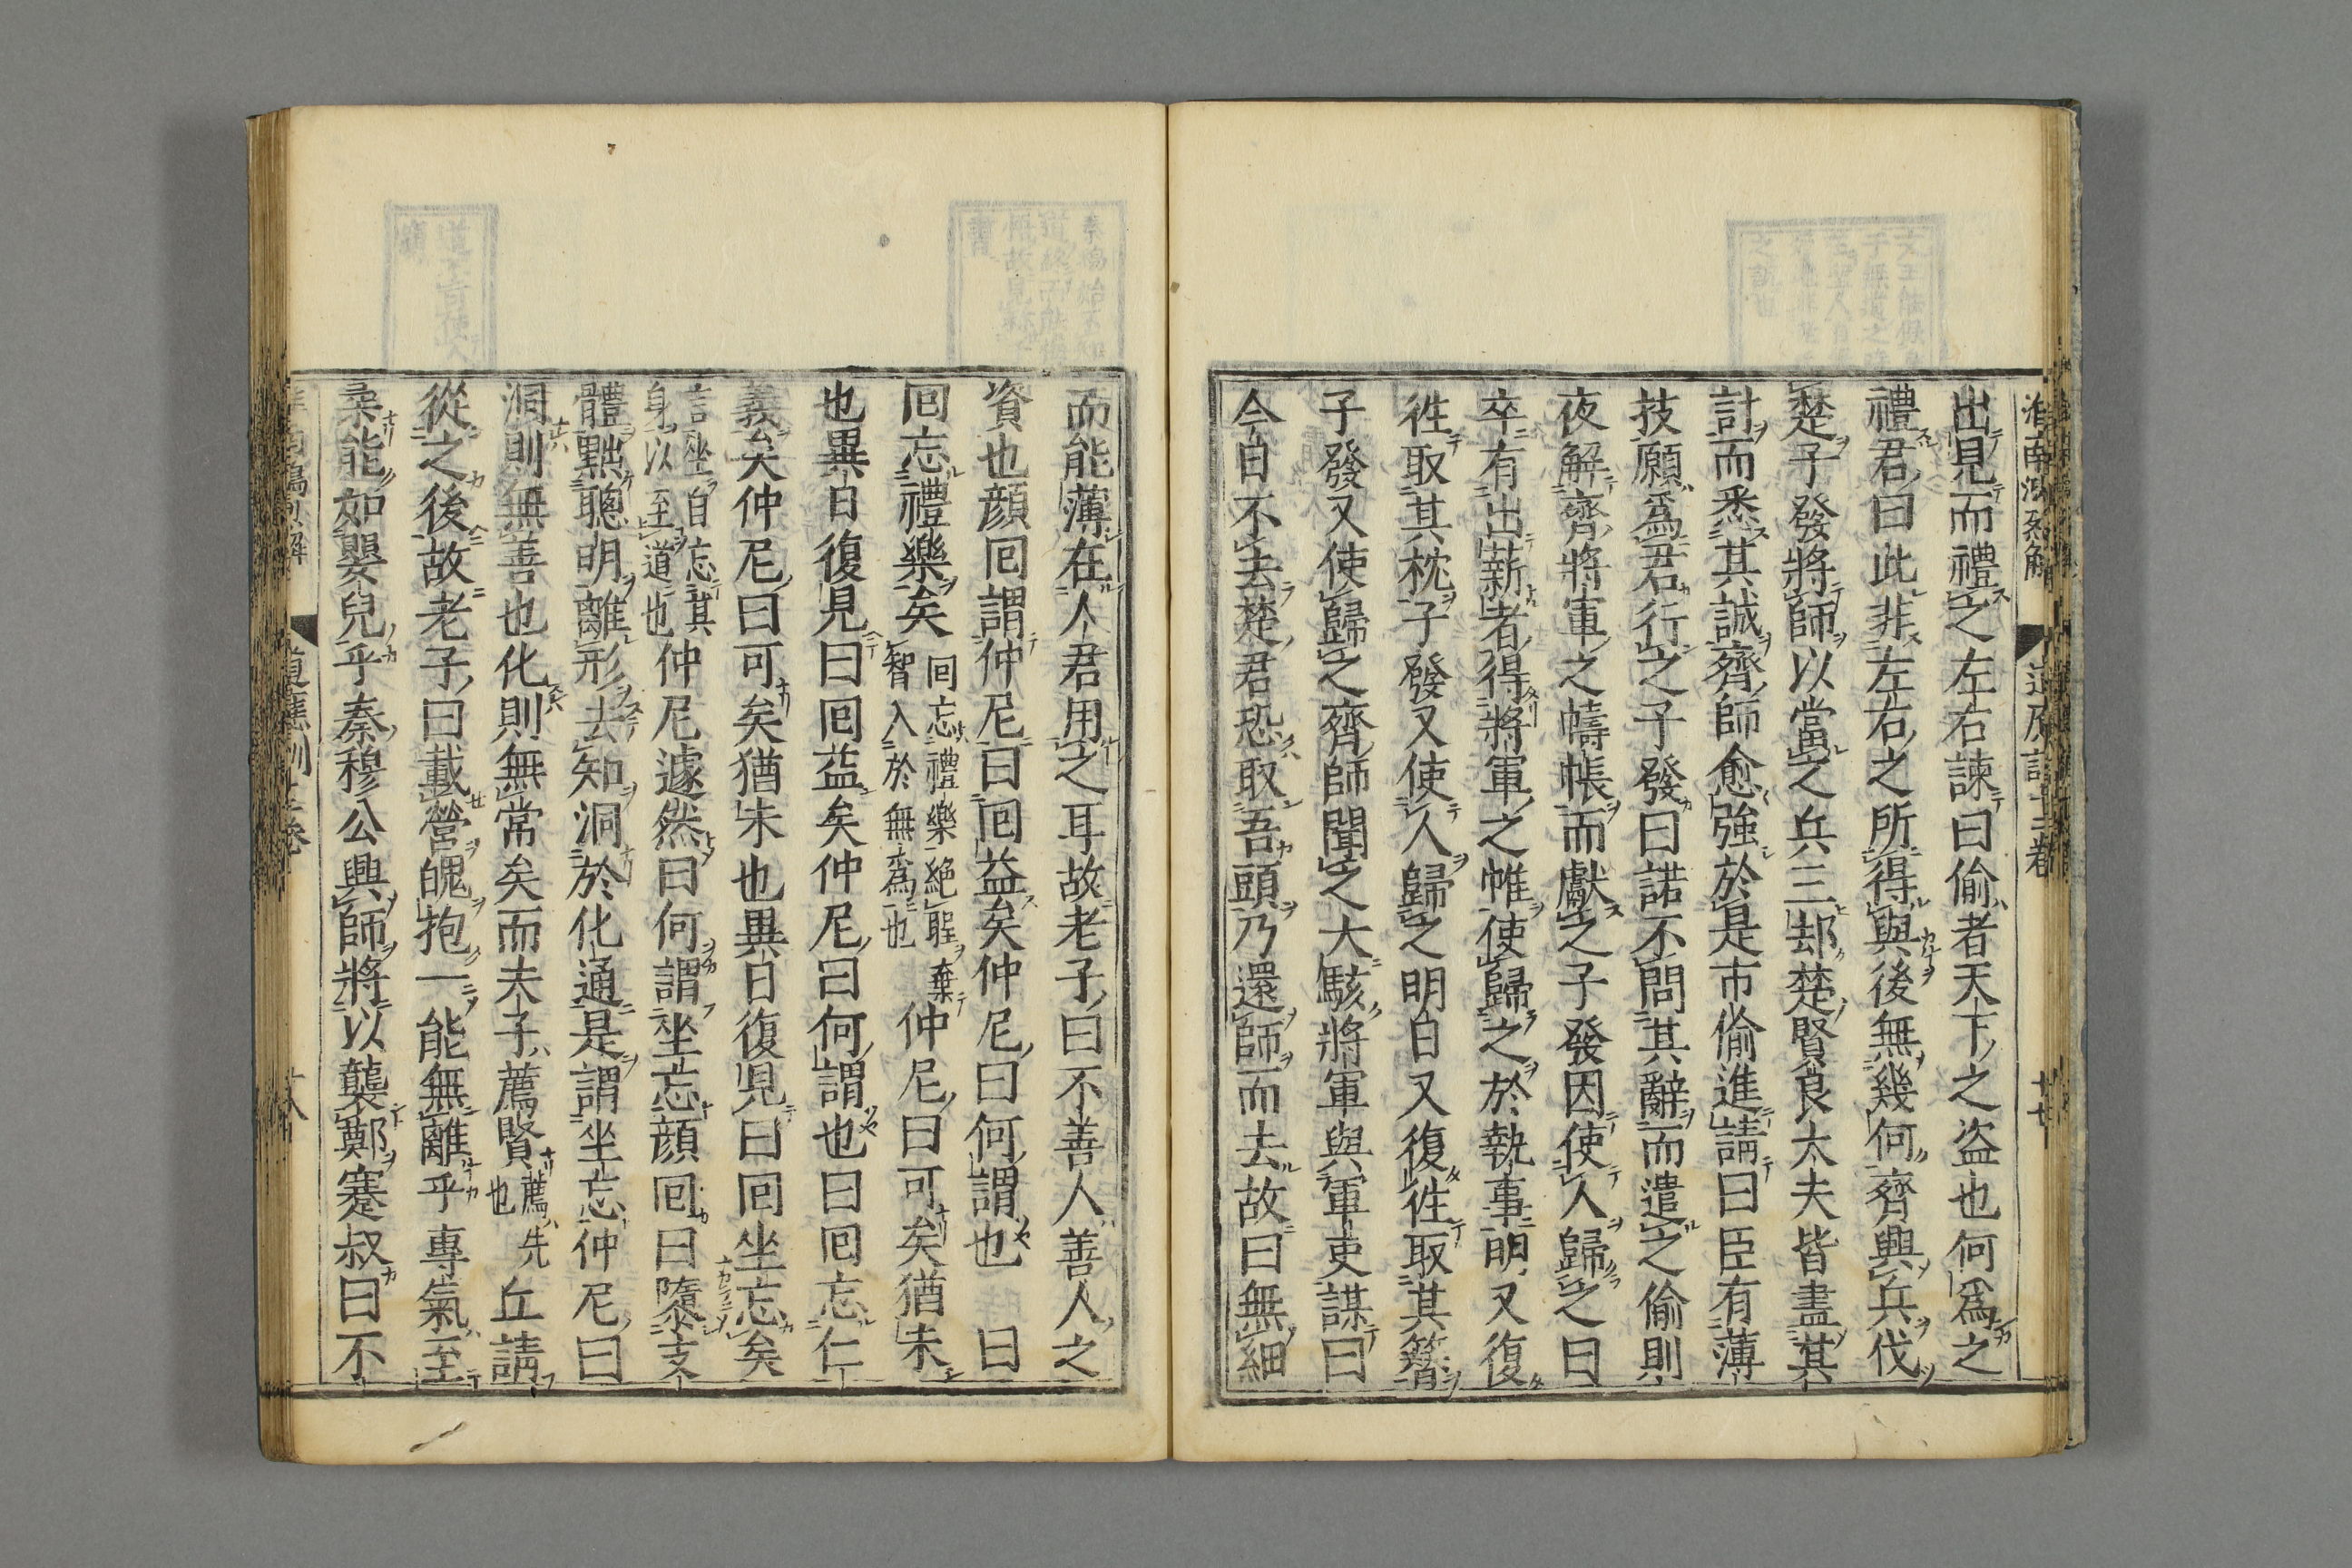 淮南鴻烈解
道應訓十二卷
十七
出見而禮之左右諫曰偷者天下之盜也何爲之
禮君曰此非左右之所得與後無幾何齊興兵伐
楚子發將師以當之兵三却楚賢良大夫皆盡其
計而悉其誠齊師愈強於是市偷進請曰臣有薄
技願爲君行之子發曰諾不問其辭而遣之偷則
夜解齊將軍之幬帳而獻之子發因使人歸之曰
卒有出薪者得將軍之帷使歸之於執事明又復
往取其枕子發又使人歸之明日又復往取其簪
子發又使歸之齊師聞之大駭將軍與軍吏謀曰
今日不去楚君恐取吾頭乃還師而去故曰無細
而能薄在人君用之耳故老子曰不善人善人之
資也顔回謂仲尼曰回益矣仲尼曰何謂也曰
回忘禮樂矣回忘禮樂絶聖棄智入於無爲也仲尼曰可矣猶未
也異日復見曰回益矣仲尼曰何謂也曰回忘仁
義矣仲尼曰可矣猶未也異日復見曰回坐忘矣
言坐自忘其身以至道也仲尼遽然曰何謂坐忘顔回曰隳支
體黜聰明離形去知洞於化通是謂坐忘仲尼曰
洞則無善也化則無常矣而夫子薦賢薦先也丘請
從之後故老子曰載營魄抱一能無離乎專氣至
柔能如嬰兒乎秦穆公興師將以襲鄭蹇叔曰不
道應訓十二卷
十八